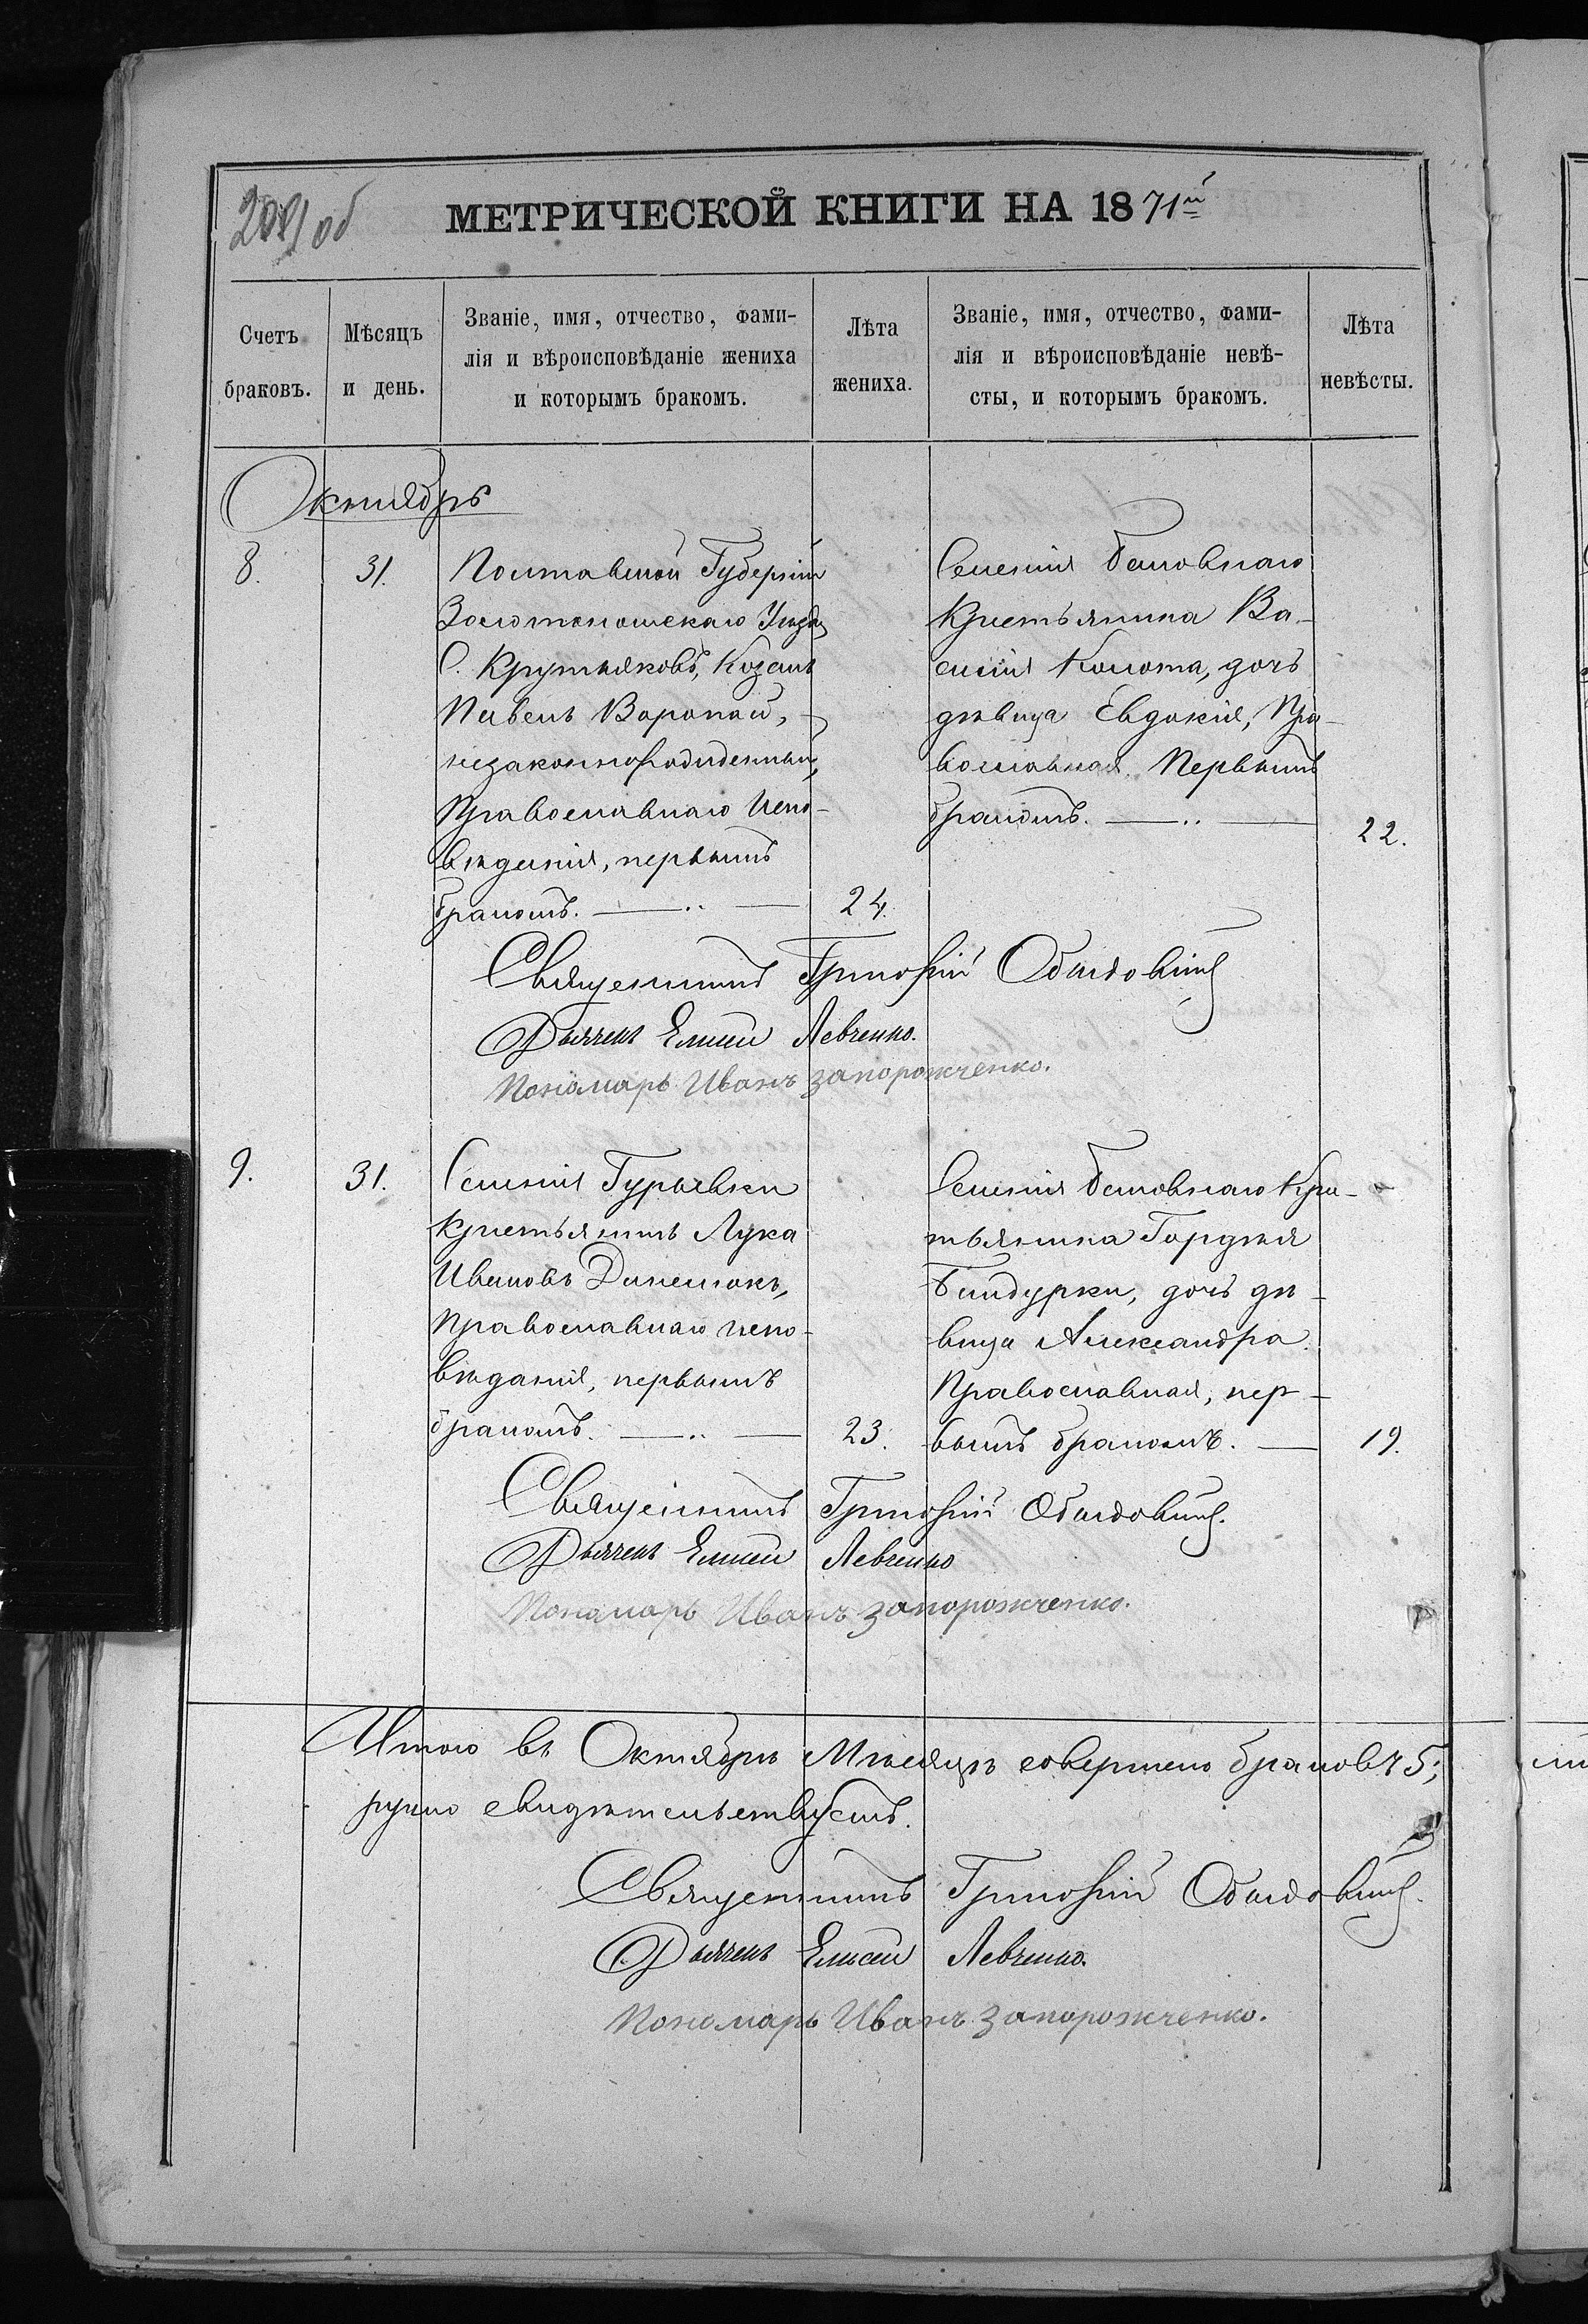 об
МЕТРИЧЕСКОЙ КНИГИ НА 1871й
Счетъ браковъ.
Мѣсяцъ и день.
Званіе, имя, отчество, фами-
лія и вѣроисповѣданіе жениха
и которымъ бракомъ.
Лѣта жениха.
Званіе, имя, отчество, фами-
лія и вѣроисповѣданіе невѣ-
сты, и которымъ бракомъ.
Лѣта невѣсты.
Октябрь
8.
31.
Полтавской Губерніи
Золотоношскаго Уѣзда
С. Крутьяковъ, Козакъ
Павелъ Воропай,
незаконнорожденный,
Православнаго Испо-
вѣданія, первымъ
бракомъ.
24.
Селенія
Крестьянина Ва-
силія Колота, дочь
дѣвица Евдокія, Пра-
вославная. Первымъ
бракомъ.
22.
Священникъ Григорій
Дьячекъ Елисей Левченко.
Пономарь Иванъ Запорожченко.
9.
31.
Селенія Гурьевки
Крестьянинъ Лука
Ивановъ
Православнаго испо-
вѣданія, первымъ
бракомъ.
23.
Селенія Кре-
тьянина Гордѣя
Бандурки, дочь дѣ-
вица Александра.
Православная, пер-
вымъ бракомъ.
19.
Священникъ Григорій
Дьячекъ Елисей Левченко
Пономарь Иванъ Запорожченко.
Итого въ Октябрѣ Мѣсяцѣ совершено браковъ 5;
свидѣтельствуемъ.
Священникъ Григорій
Дьячекъ Елисей Левченко.
Пономарь Иванъ Запорожченко.